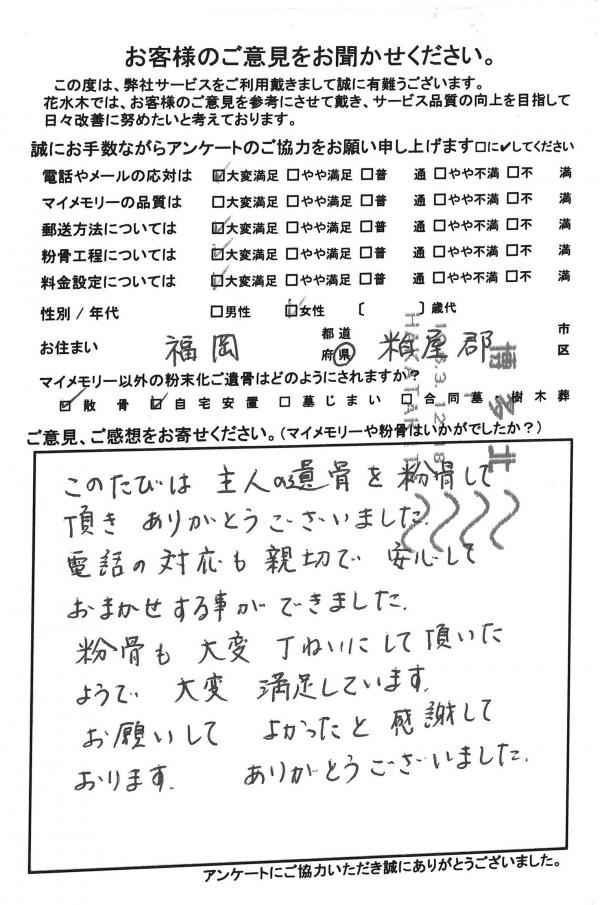 お客様のご意見をお聞かせください。
この度は、弊社サービスをご利用戴きまして誠に有難うございます。
花水木では、お客様のご意見を参考にさせて戴き、サービス品質の向上を目指して
日々改善に努めたいと考えております。
誠にお手数ながらアンケートのご協力をお願い申し上げます□に✔してください
電話やメールの応対は ☑大変満足 □やや満足 □普 通 □やや不満 □不 満
マイメモリーの品質は □大変満足 □やや満足 □普 通 □やや不満 □不 満
郵送方法については ☑大変満足 □やや満足 □普 通 □やや不満 □不 満
粉骨工程については ☑大変満足 □やや満足 □普 通 □やや不満 □不 満
料金設定については ☑大変満足 □やや満足 □普 通 □やや不満 □不 満
性別 / 年代 □男性 ☑女性 〔 〕歳代
お住まい 福岡 都道府県 粕屋郡 市区
マイメモリー以外の粉末化ご遺骨はどのようにされますか?
☑散骨 ☑自宅安置 □墓じまい □合同墓・樹木葬
ご意見、ご感想をお寄せください。(マイメモリーや粉骨はいかがでしたか?)
このたびは 主人の遺骨を粉骨して
頂き ありがとうございました。
電話の対応も親切で 安心して
おまかせする事ができました。
粉骨も 大変 丁ねいにして頂いた
ようで 大変 満足しています。
お願いして よかったと感謝して
おります。 ありがとうございました。
アンケートにご協力いただき誠にありがとうございました。
博多北